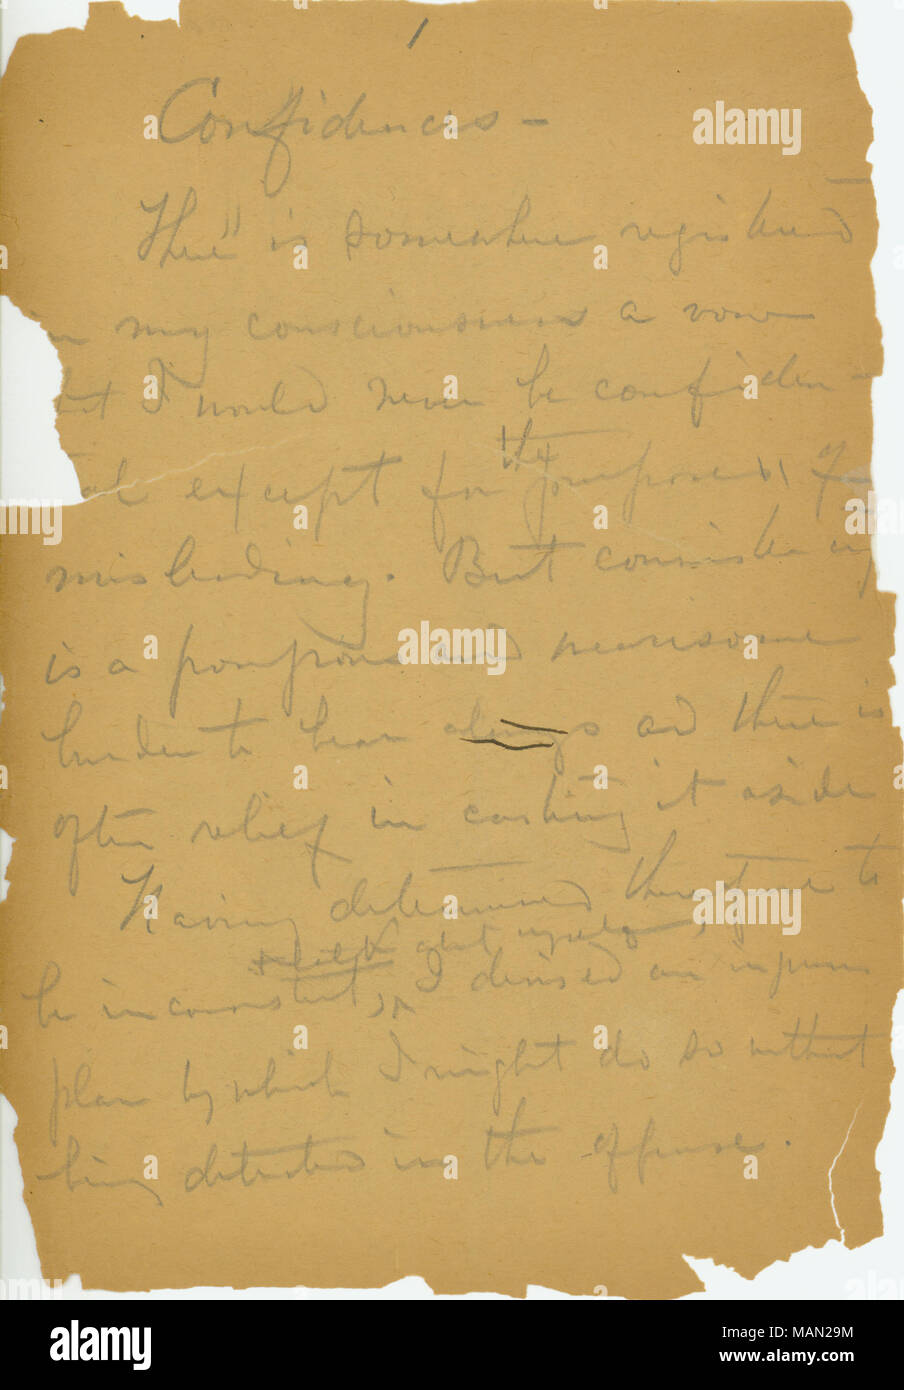 1
Confidences -
There is somewhere registered
in my consciousness a vow
that I would never be confiden-
tial except for the purposes of
misleading. But consistency
is a pompous and wearisome
burden to bear always and there is
often relief in casting it aside
Having determined therefore to
about myself,
be inconsistent, I devised an
plan by which I might do so without
being detected in the offense.
alamy
Image ID: MAN29M
www.alamy.com